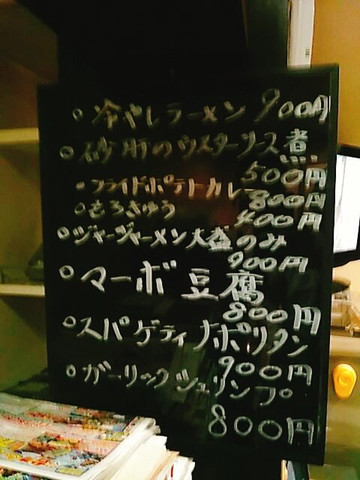 ○冷やしラーメン 900円
○砂肝のウスターソース煮
500円
○フライドポテトカレー 800円
○もろきゅう 400円
○ジャージャーメン大盛のみ
900円
○マーボ豆腐
800円
○スパゲティナポリタン
900円
○ガーリックシュリンプ
800円